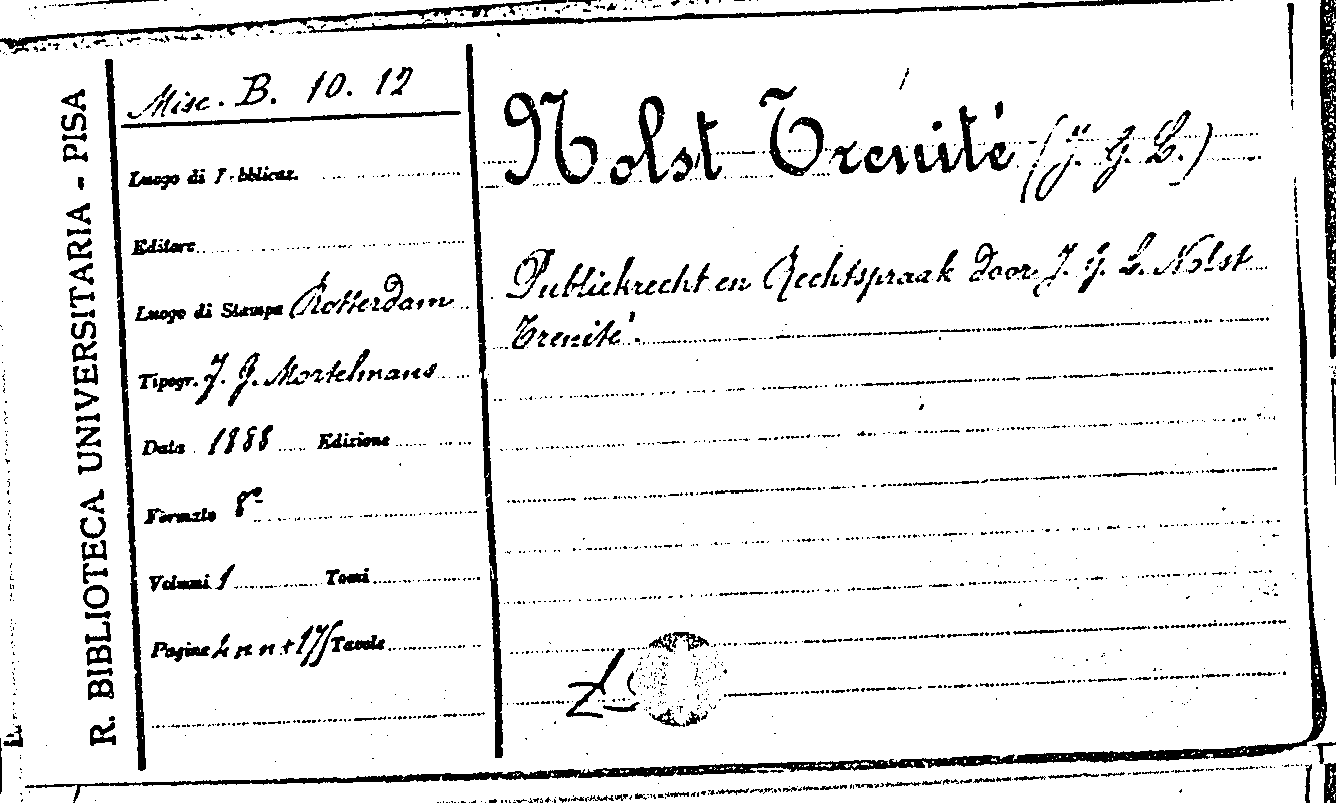 R. BIBLIOTECA UNIVERSITARIA - PISA
Misc. B. 10. 12
Luogo di Pubblicaz.
Editore
Luogo di Stampa Rotterdam
Tipogr. J. G. Mortelmans
Data 1888 Edizione
Formato 8°
Volumi 1 Tomi
Pagine 2 n n + 175 Tavole
Nolst Trenité (J. G. L.)
Publiekrecht en Rechtspraak door J. G. L. Nolst
Trenité.